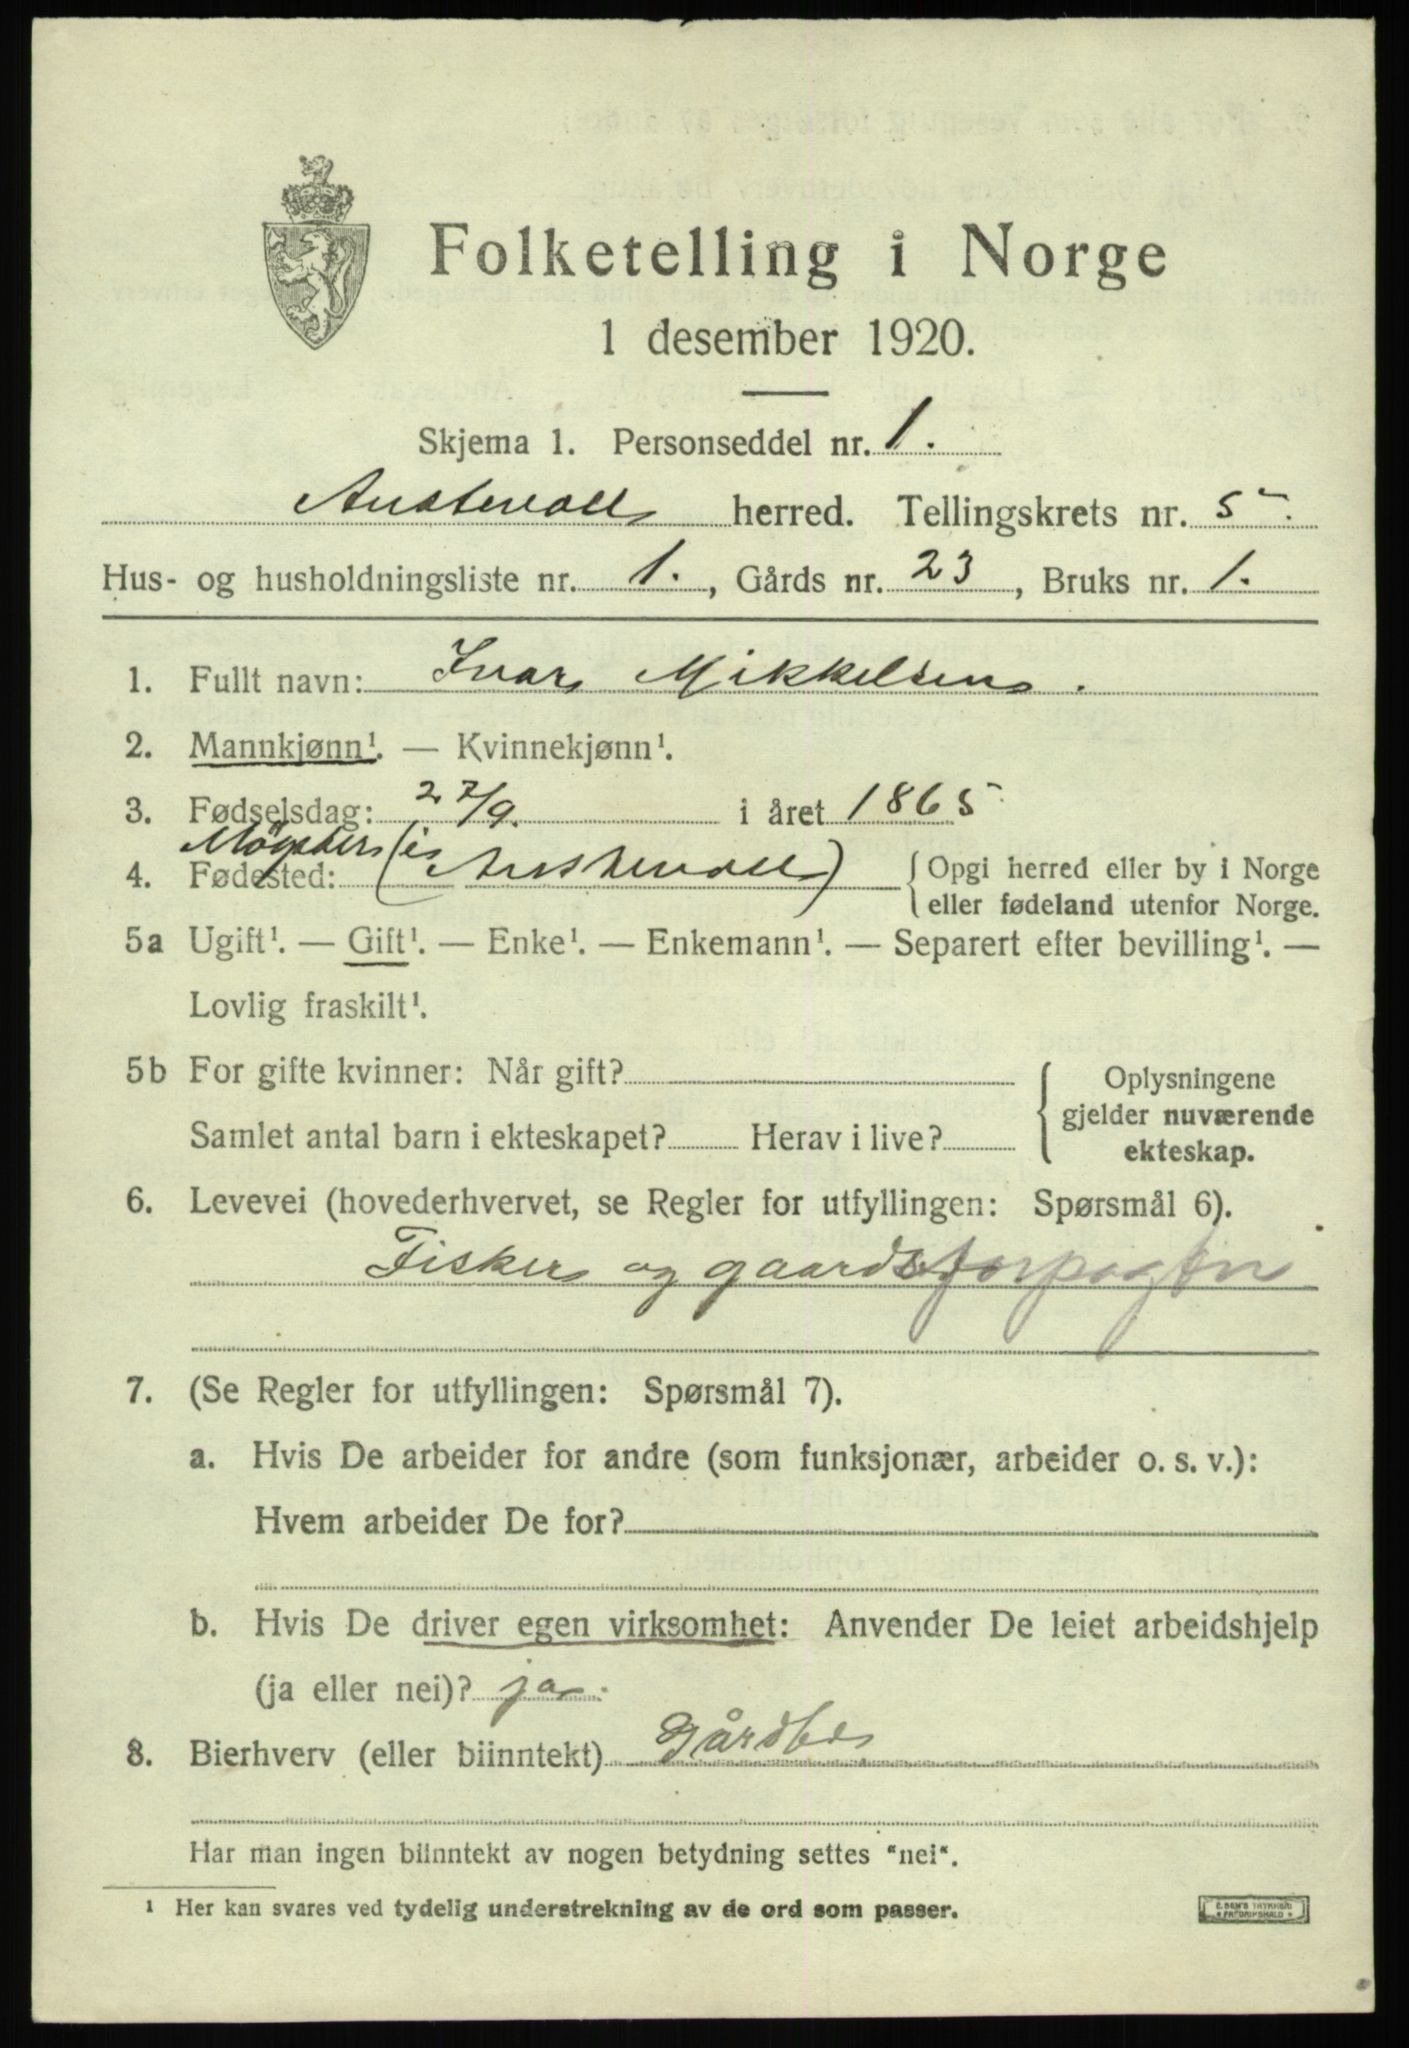 Folketelling i Norge
1 desember 1920.
Skjema 1. Personseddel nr. 1.
Austevoll herred. Tellingskrets nr. 5.
Hus- og husholdningsliste nr. 1., Gårds nr. 23, Bruks nr. 1.
1. Fullt navn: Ivar Mikkelsen.
2. Mannkjønn¹. — Kvinnekjønn¹.
3. Fødselsdag: 27/9. i året 1865
4. Fødested: Møgster (i Austevoll) { Opgi herred eller by i Norge
eller fødeland utenfor Norge.
5a Ugift¹. — Gift¹. — Enke¹. — Enkemann¹. — Separert efter bevilling¹. —
Lovlig fraskilt¹.
5b For gifte kvinner: Når gift?
Samlet antal barn i ekteskapet? Herav i live?
{ Oplysningene
gjelder nuværende
ekteskap.
6. Levevei (hovederhvervet, se Regler for utfyllingen: Spørsmål 6).
Fisker og gaardsforpagter
7. (Se Regler for utfyllingen: Spørsmål 7).
a. Hvis De arbeider for andre (som funksjonær, arbeider o. s. v.):
Hvem arbeider De for?
b. Hvis De driver egen virksomhet: Anvender De leiet arbeidshjelp
(ja eller nei)? ja.
8. Bierhverv (eller biinntekt) Gårdbr
Har man ingen biinntekt av nogen betydning settes "nei".
¹ Her kan svares ved tydelig understrekning av de ord som passer.